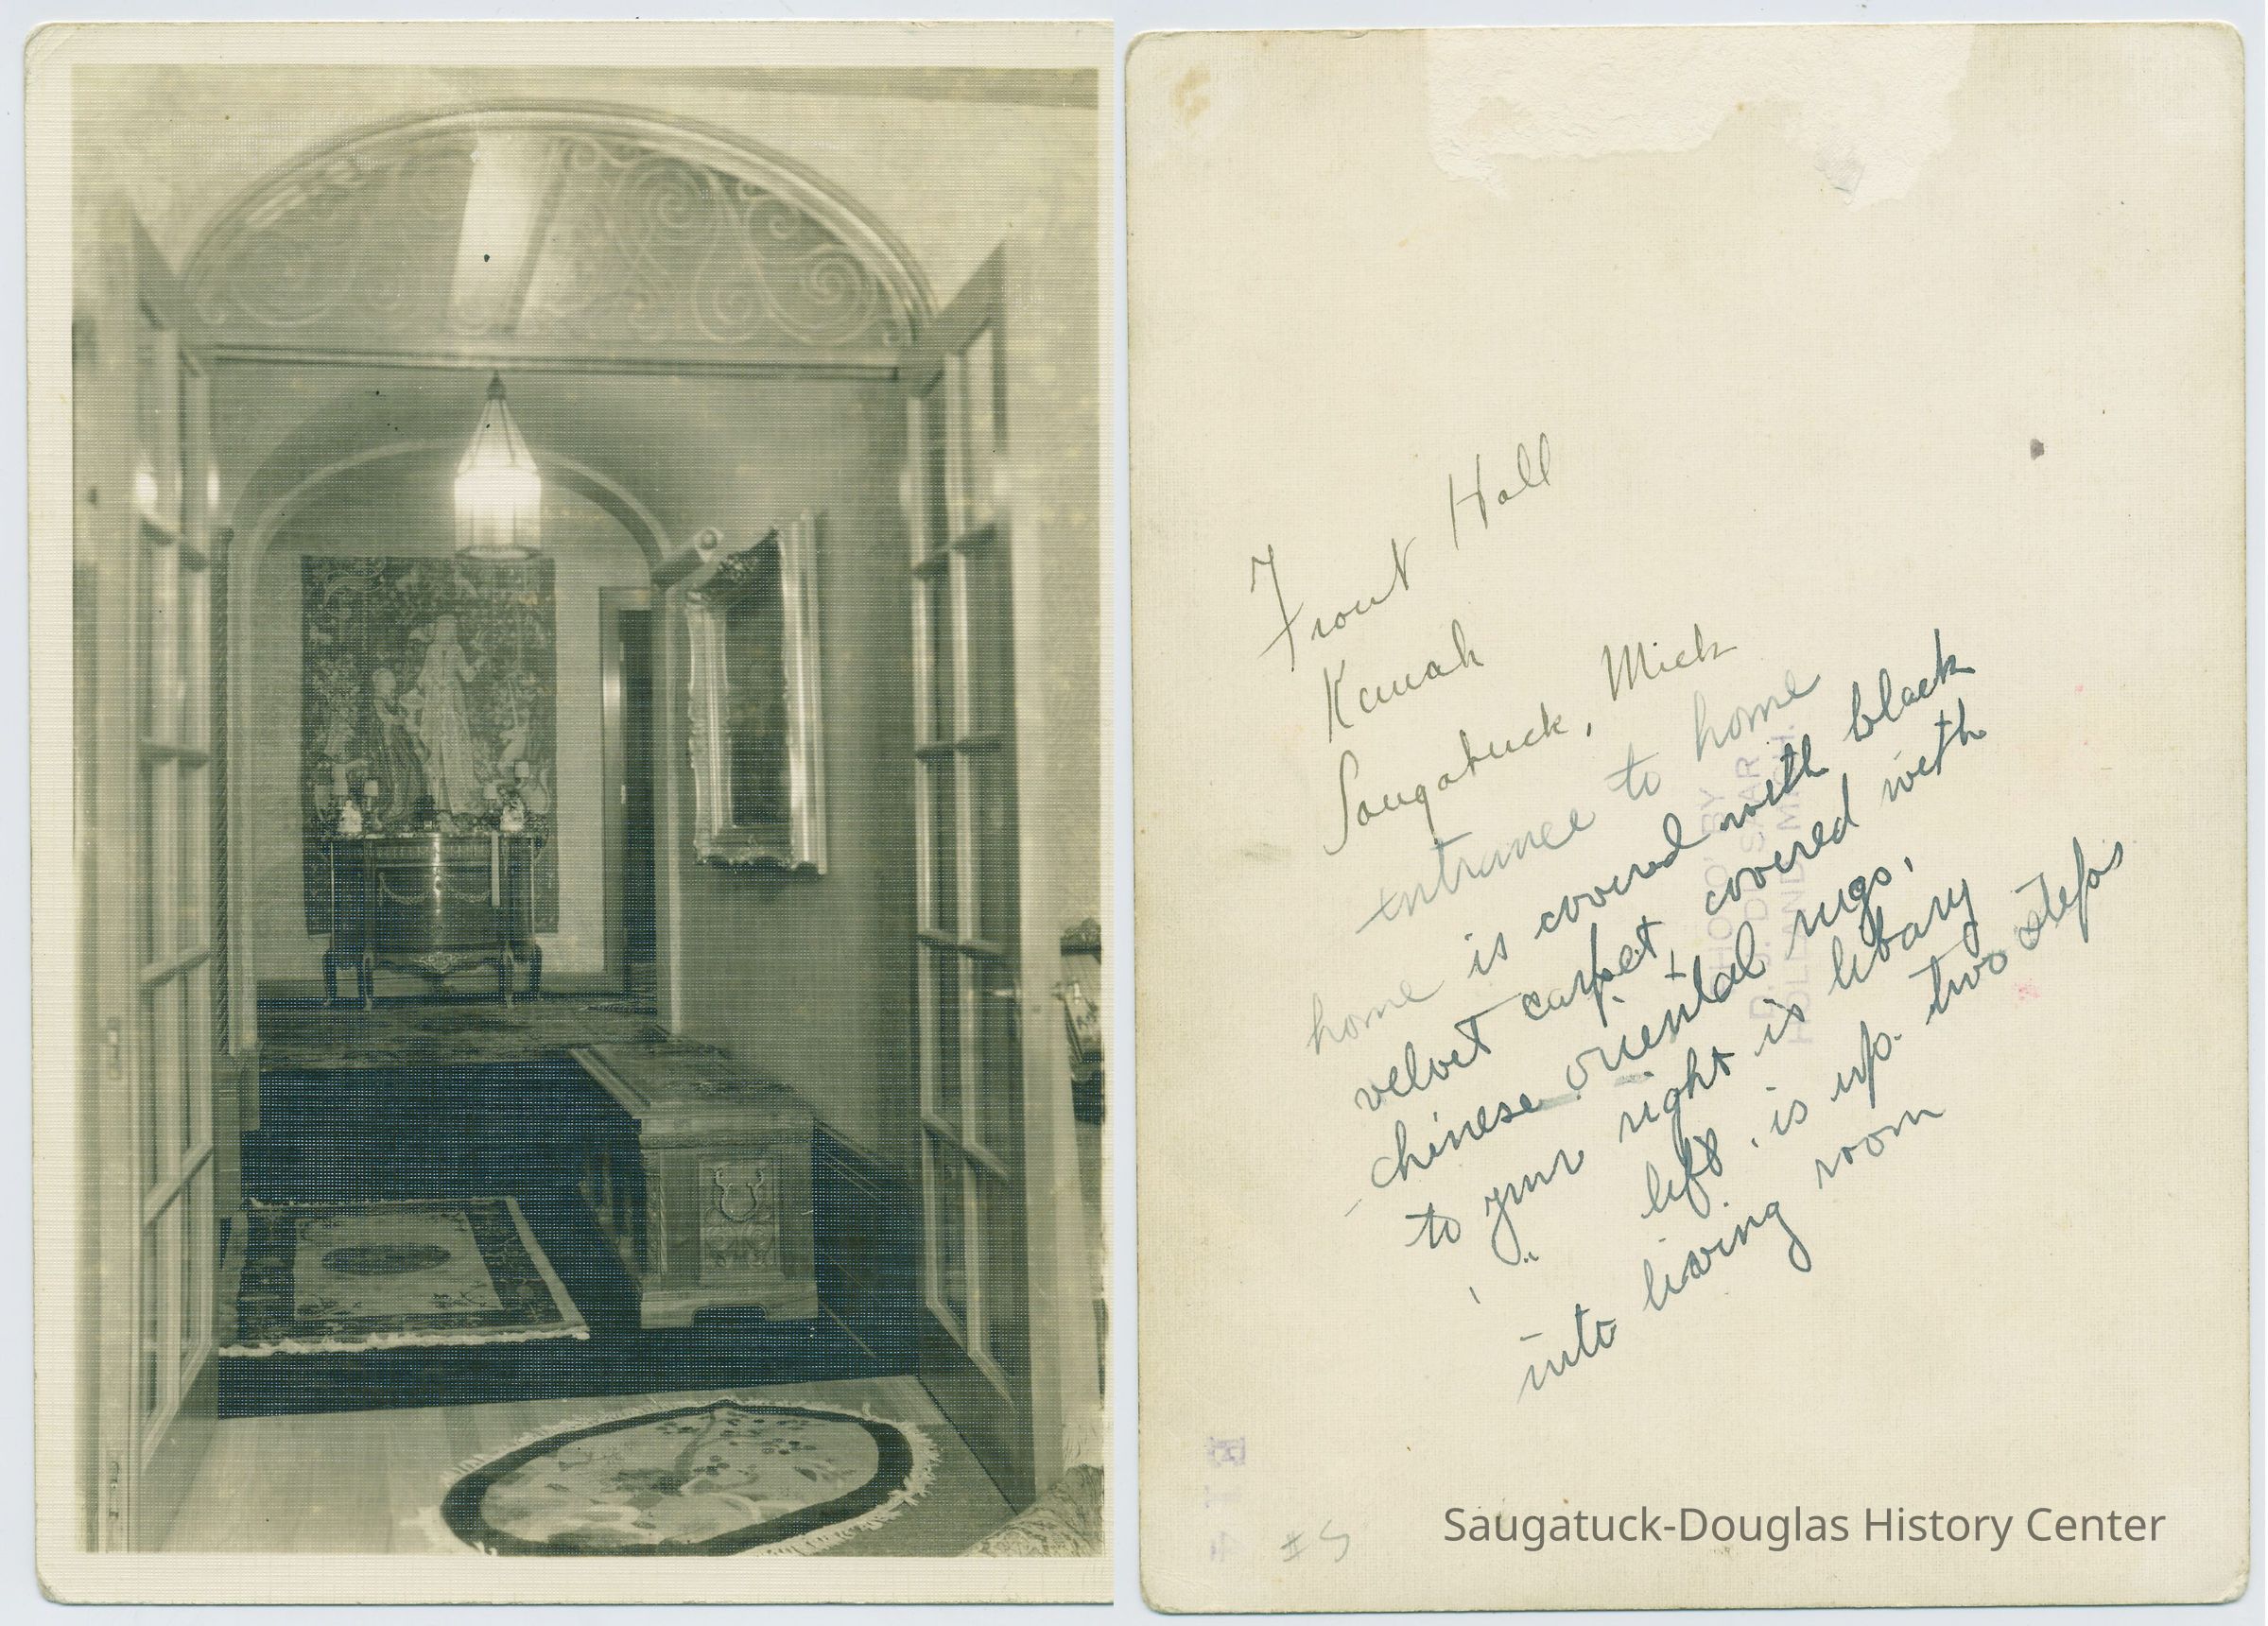 Front Hall
Kanah
Saugatuck, Mich
entrance to home
home is covered with black
velvet carpet, covered with
chinese oriental rugs.
to your right is libary
" " left. is up. two steps
into living room
PHOTO BY
D. J. DD SAAR
HOLLAND, MICH.
#5
Saugatuck-Douglas History Center